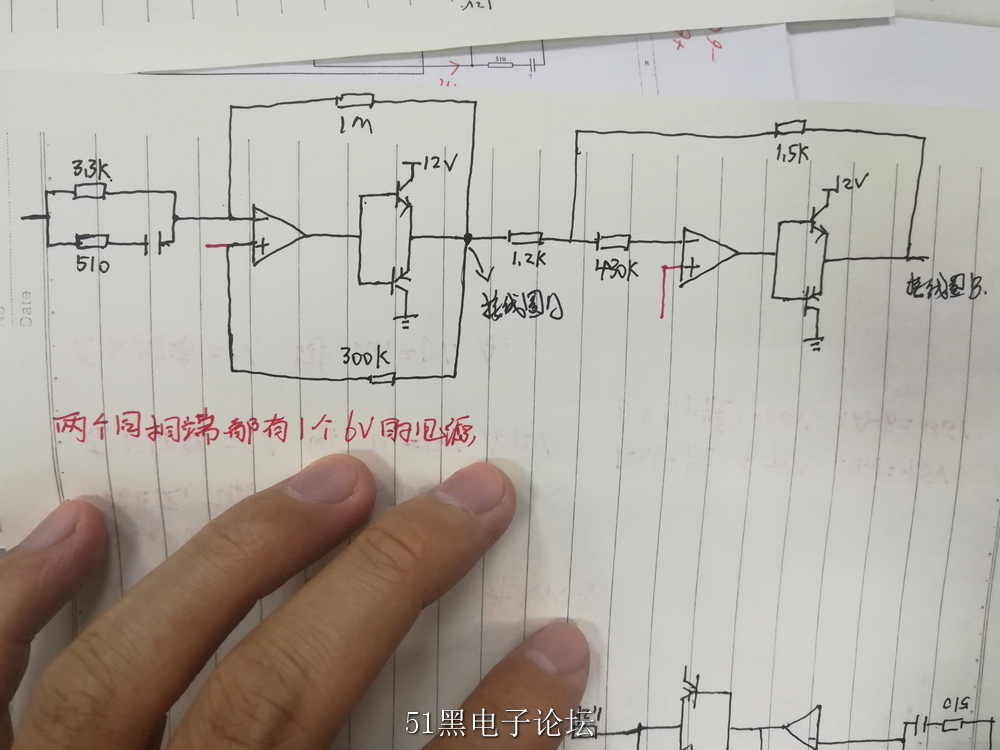 510
3.3K
510
1M
12V
300K
1.2K
接线圈
430K
1.5K
12V
接线圈
两个同相端都有1个6V的
Date
510
51黑电子论坛